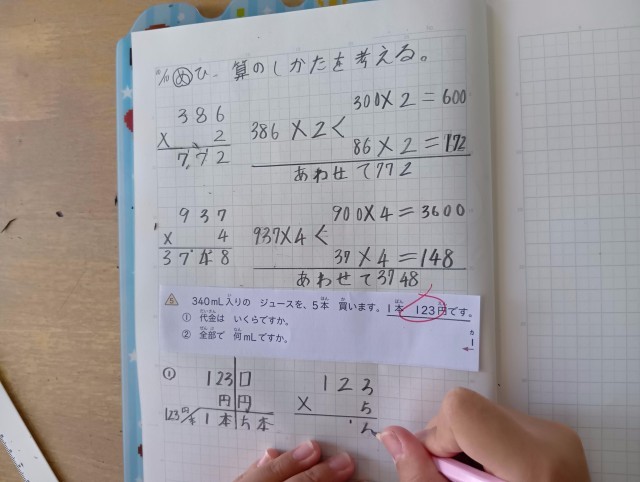 9/11 め ひっ算のしかたを考える。
386
× 2
772
386×2<
300×2=600
86×2=172
あわせて772
937
× 4
3748
937×4<
900×4=3600
37×4=148
あわせて3748
5 340mL入りの ジュースを、5本買います。1本 123円です。
① 代金は いくらですか。
② 全部で 何mLですか。
①
123 □
円 円
1本 5本
123
× 5
5